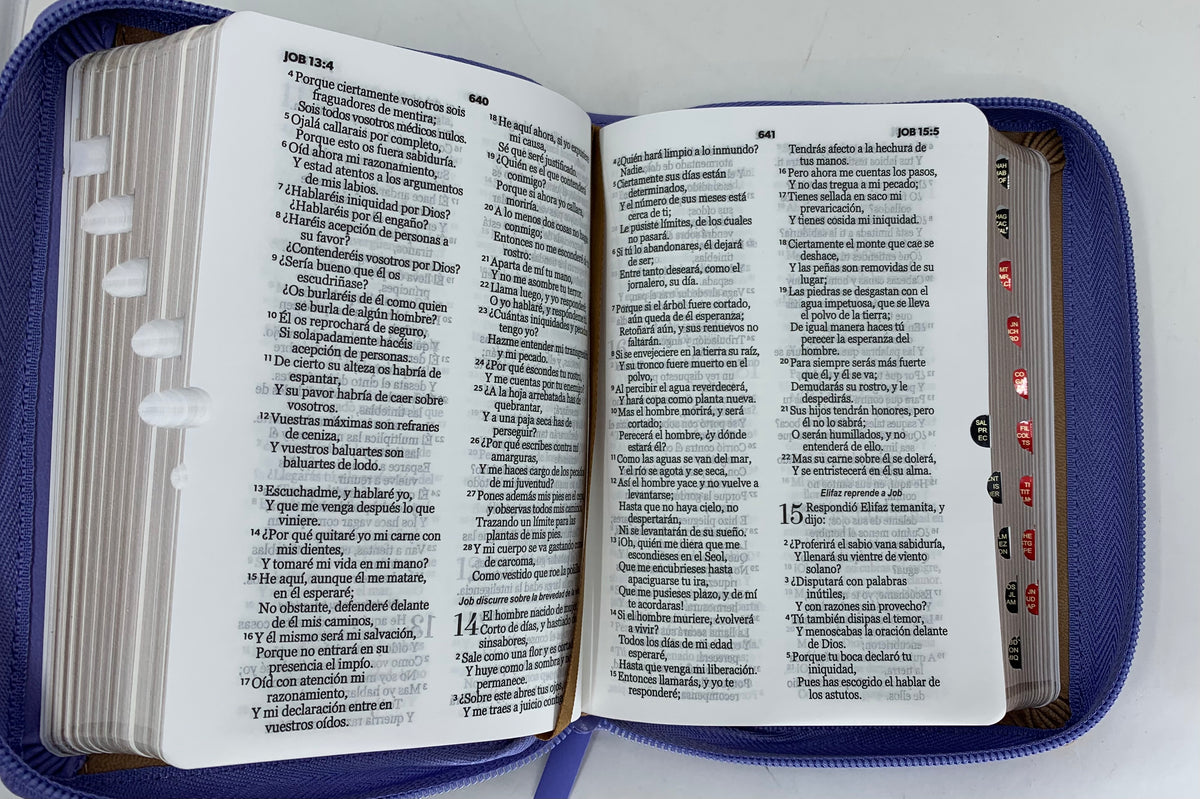 JOB 13:4
640
4 Porque ciertamente vosotros sois
fraguadores de mentira;
Sois todos vosotros médicos nulos.
5 Ojalá callarais por completo,
Porque esto os fuera sabiduría.
6 Oíd ahora mi razonamiento,
Y estad atentos a los argumentos
de mis labios.
7 ¿Hablaréis iniquidad por Dios?
¿Hablaréis por él engaño?
8 ¿Haréis acepción de personas a
su favor?
¿Contenderéis vosotros por Dios?
9 ¿Sería bueno que él os
escudriñase?
¿Os burlaréis de él como quien
se burla de algún hombre?
10 Él os reprochará de seguro,
Si solapadamente hacéis
acepción de personas.
11 De cierto su alteza os habría de
espantar,
Y su pavor habría de caer sobre
vosotros.
12 Vuestras máximas son refranes
de ceniza,
Y vuestros baluartes son
baluartes de lodo.
13 Escuchadme, y hablaré yo,
Y que me venga después lo que
viniere.
14 ¿Por qué quitaré yo mi carne con
mis dientes,
Y tomaré mi vida en mi mano?
15 He aquí, aunque él me matare,
en él esperaré;
No obstante, defenderé delante
de él mis caminos,
16 Y él mismo será mi salvación,
Porque no entrará en su
presencia el impío.
17 Oíd con atención mi
razonamiento,
Y mi declaración entre en
vuestros oídos.
18 He aquí ahora, si yo
mi causa,
Sé que seré justificado.
19 ¿Quién es el que contenderá
conmigo?
Porque si ahora yo callara,
moriría.
20 A lo menos dos cosas no
conmigo;
Entonces no me esconderé
rostro:
21 Aparta de mí tu mano,
Y no me asombre tu terror.
22 Llama luego, y yo responderé;
O yo hablaré, y respóndeme
23 ¿Cuántas iniquidades y pecados
tengo yo?
Hazme entender mi
y mi pecado.
24 ¿Por qué escondes tu rostro,
Y me cuentas por tu enemigo?
25 ¿A la hoja arrebatada has de
quebrantar,
Y a una paja seca has de
perseguir?
26 ¿Por qué escribes contra mí
amarguras,
Y me haces cargo de los
de mi juventud?
27 Pones además mis pies en el
y observas todos mis caminos,
Trazando un límite para las
plantas de mis pies.
28 Y mi cuerpo se va gastando
de carcoma,
Como vestido que roe la
Job discurre sobre la brevedad de la
14 El hombre nacido de
Corto de días, y hastiado
sinsabores,
2 Sale como una flor y es
Y huye como la sombra y no
permanece.
3 ¿Sobre éste abres tus ojos,
Y me traes a juicio
641
JOB 15:5
4 ¿Quién hará limpio a lo inmundo?
Nadie.
5 Ciertamente sus días están
determinados,
Y el número de sus meses está
cerca de ti;
Le pusiste límites, de los cuales
no pasará.
6 Si tú lo abandonares, él dejará
de ser;
Entre tanto deseará, como el
jornalero, su día.
7 Porque si el árbol fuere cortado,
aún queda de él esperanza;
Retoñará aún, y sus renuevos no
faltarán.
8 Si se envejeciere en la tierra su raíz,
Y su tronco fuere muerto en el
polvo,
9 Al percibir el agua reverdecerá,
Y hará copa como planta nueva.
10 Mas el hombre morirá, y será
cortado;
Perecerá el hombre, ¿y dónde
estará él?
11 Como las aguas se van del mar,
Y el río se agota y se seca,
12 Así el hombre yace y no vuelve a
levantarse;
Hasta que no haya cielo, no
despertarán,
Ni se levantarán de su sueño.
13 ¡Oh, quién me diera que me
escondieses en el Seol,
Que me encubrieses hasta
apaciguarse tu ira,
Que me pusieses plazo, y de mí
te acordaras!
14 Si el hombre muriere, ¿volverá
a vivir?
Todos los días de mi edad
esperaré,
Hasta que venga mi liberación.
15 Entonces llamarás, y yo te
responderé;
Tendrás afecto a la hechura de
tus manos.
16 Pero ahora me cuentas los pasos,
Y no das tregua a mi pecado;
17 Tienes sellada en saco mi
prevaricación,
Y tienes cosida mi iniquidad.
18 Ciertamente el monte que cae se
deshace,
Y las peñas son removidas de su
lugar;
19 Las piedras se desgastan con el
agua impetuosa, que se lleva
el polvo de la tierra;
De igual manera haces tú
perecer la esperanza del
hombre.
20 Para siempre serás más fuerte
que él, y él se va;
Demudarás su rostro, y le
despedirás.
21 Sus hijos tendrán honores, pero
él no lo sabrá;
O serán humillados, y no
entenderá de ello.
22 Mas su carne sobre él se dolerá,
Y se entristecerá en él su alma.
Elifaz reprende a Job
15 Respondió Elifaz temanita, y
dijo:
2 ¿Proferirá el sabio vana sabiduría,
Y llenará su vientre de viento
solano?
3 ¿Disputará con palabras
inútiles,
Y con razones sin provecho?
4 Tú también disipas el temor,
Y menoscabas la oración delante
de Dios.
5 Porque tu boca declaró tu
iniquidad,
Pues has escogido el hablar de
los astutos.
SAL
PR
EC